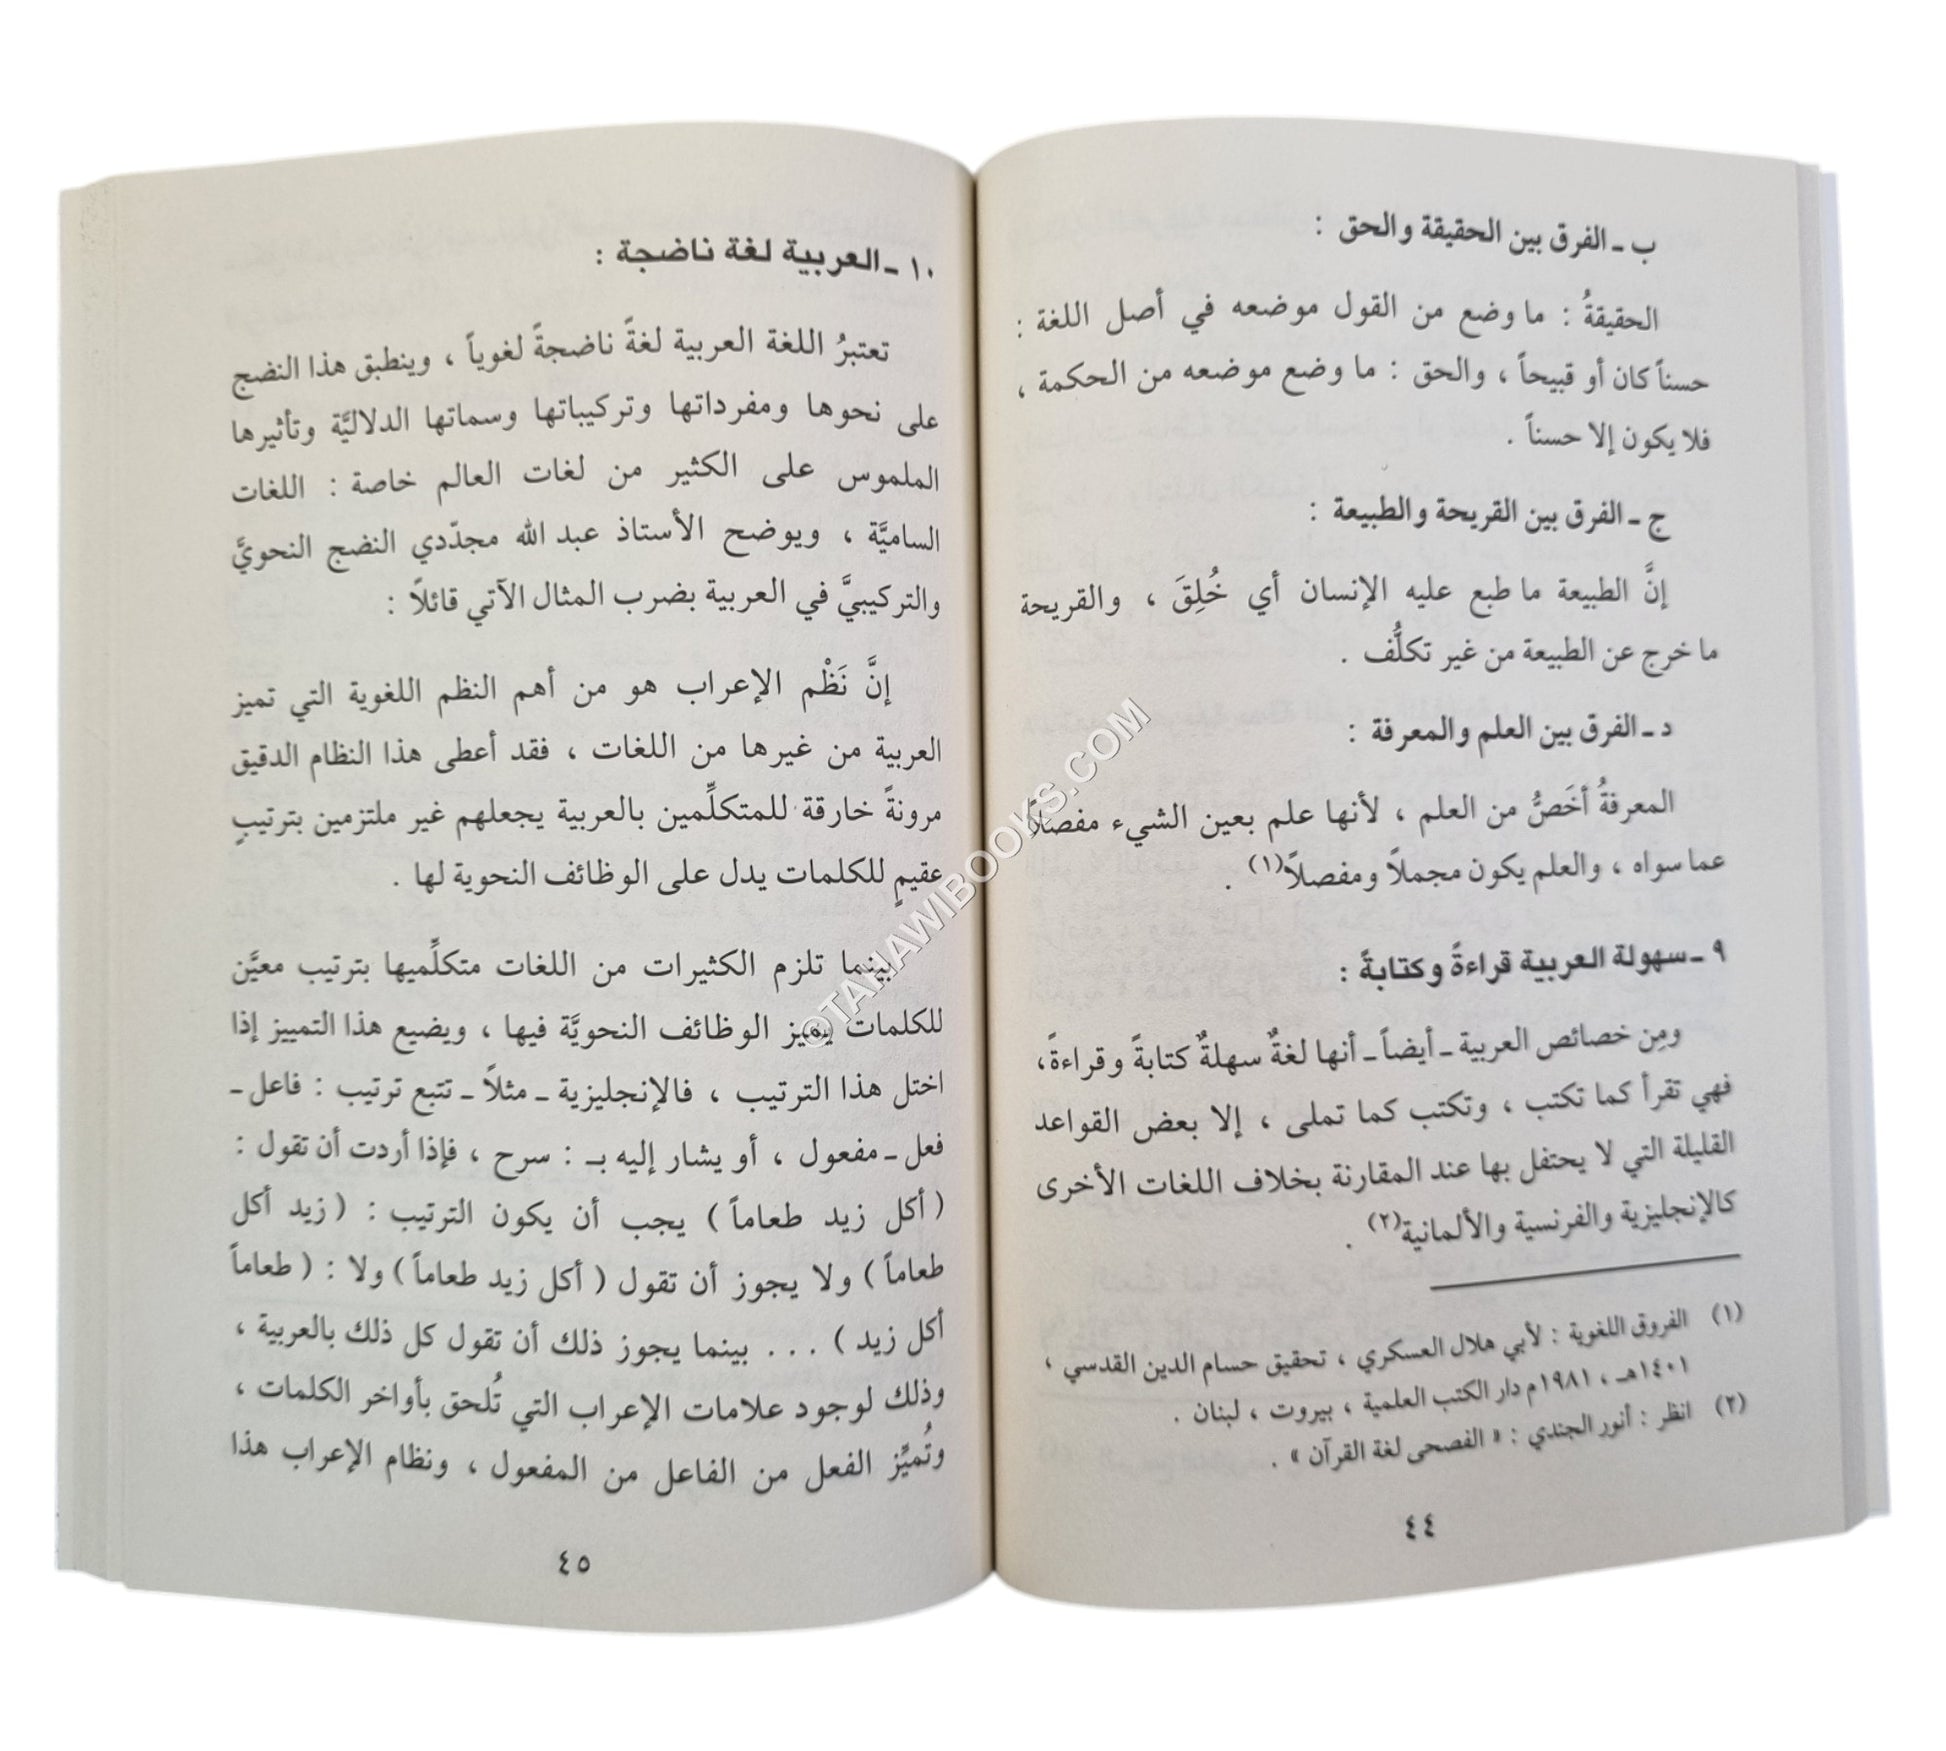 ب ـ الفرق بين الحقيقة والحق :
الحقيقةُ : ما وضع من القول موضعه في أصل اللغة :
حسناً كان أو قبيحاً ، والحق : ما وضع موضعه من الحكمة ،
فلا يكون إلا حسناً .
ج ـ الفرق بين القريحة والطبيعة :
إنَّ الطبيعة ما طبع عليه الإنسان أي خُلِقَ ، والقريحة
ما خرج عن الطبيعة من غير تكلُّف .
د ـ الفرق بين العلم والمعرفة :
المعرفةُ أخَصُّ من العلم ، لأنها علم بعين الشيء مفصلاً
عما سواه ، والعلم يكون مجملاً ومفصلاً(١) .
٩ ـ سهولة العربية قراءةً وكتابةً :
ومِن خصائص العربية ـ أيضاً ـ أنها لغةٌ سهلةٌ كتابةً وقراءةً،
فهي تقرأ كما تكتب ، وتكتب كما تملى ، إلا بعض القواعد
القليلة التي لا يحتفل بها عند المقارنة بخلاف اللغات الأخرى
كالإنجليزية والفرنسية والألمانية(٢) .
(١) الفروق اللغوية : لأبي هلال العسكري ، تحقيق حسام الدين القدسي ،
١٤٠١هـ ، ١٩٨١م دار الكتب العلمية ، بيروت ، لبنان .
(٢) انظر : أنور الجندي : « الفصحى لغة القرآن » .
٤٤
١٠ ـ العربية لغة ناضجة :
تعتبرُ اللغة العربية لغةً ناضجةً لغوياً ، وينطبق هذا النضج
على نحوها ومفرداتها وتركيباتها وسماتها الدلاليَّة وتأثيرها
الملموس على الكثير من لغات العالم خاصة : اللغات
الساميَّة ، ويوضح الأستاذ عبد الله مجدّدي النضج النحويَّ
والتركيبيَّ في العربية بضرب المثال الآتي قائلاً :
إنَّ نَظْم الإعراب هو من أهم النظم اللغوية التي تميز
العربية من غيرها من اللغات ، فقد أعطى هذا النظام الدقيق
مرونةً خارقة للمتكلِّمين بالعربية يجعلهم غير ملتزمين بترتيبٍ
عقيمٍ للكلمات يدل على الوظائف النحوية لها .
بينما تلزم الكثيرات من اللغات متكلِّميها بترتيب معيَّن
للكلمات يميز الوظائف النحويَّة فيها ، ويضيع هذا التمييز إذا
اختل هذا الترتيب ، فالإنجليزية ـ مثلاً ـ تتبع ترتيب : فاعل ـ
فعل ـ مفعول ، أو يشار إليه بـ : سرح ، فإذا أردت أن تقول :
( أكل زيد طعاماً ) يجب أن يكون الترتيب : ( زيد أكل
طعاماً ) ولا يجوز أن تقول ( أكل زيد طعاماً ) ولا : ( طعاماً
أكل زيد ) . . . بينما يجوز ذلك أن تقول كل ذلك بالعربية ،
وذلك لوجود علامات الإعراب التي تُلحق بأواخر الكلمات ،
وتُميِّز الفعل من الفاعل من المفعول ، ونظام الإعراب هذا
٤٥
©TAHAWIBOOKS.COM